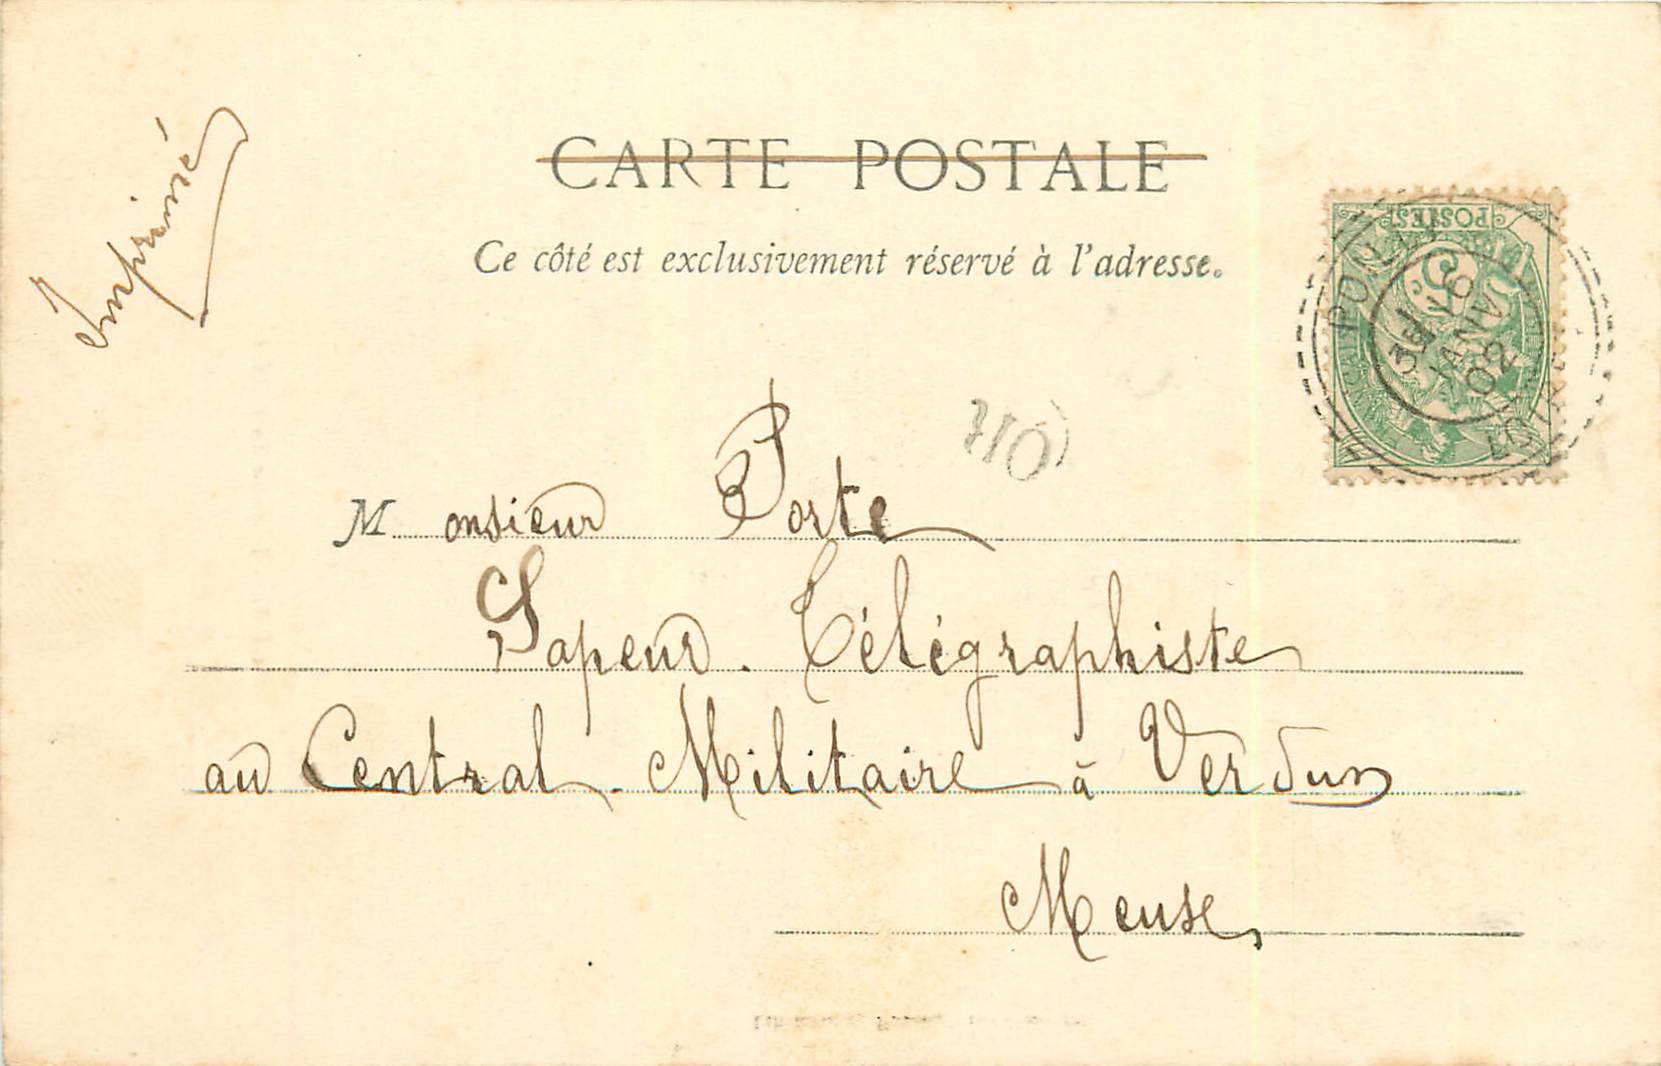 Imprimé
CARTE POSTALE
Ce côté est exclusivement réservé à l'adresse.
POSTES
5
3E 16
JANV
02
M onsieur Porte
Sapeur. Télégraphiste
au Central. Militaire à Verdun
Meuse